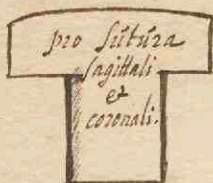 pro Sutura
Sagittali
et
coronali.